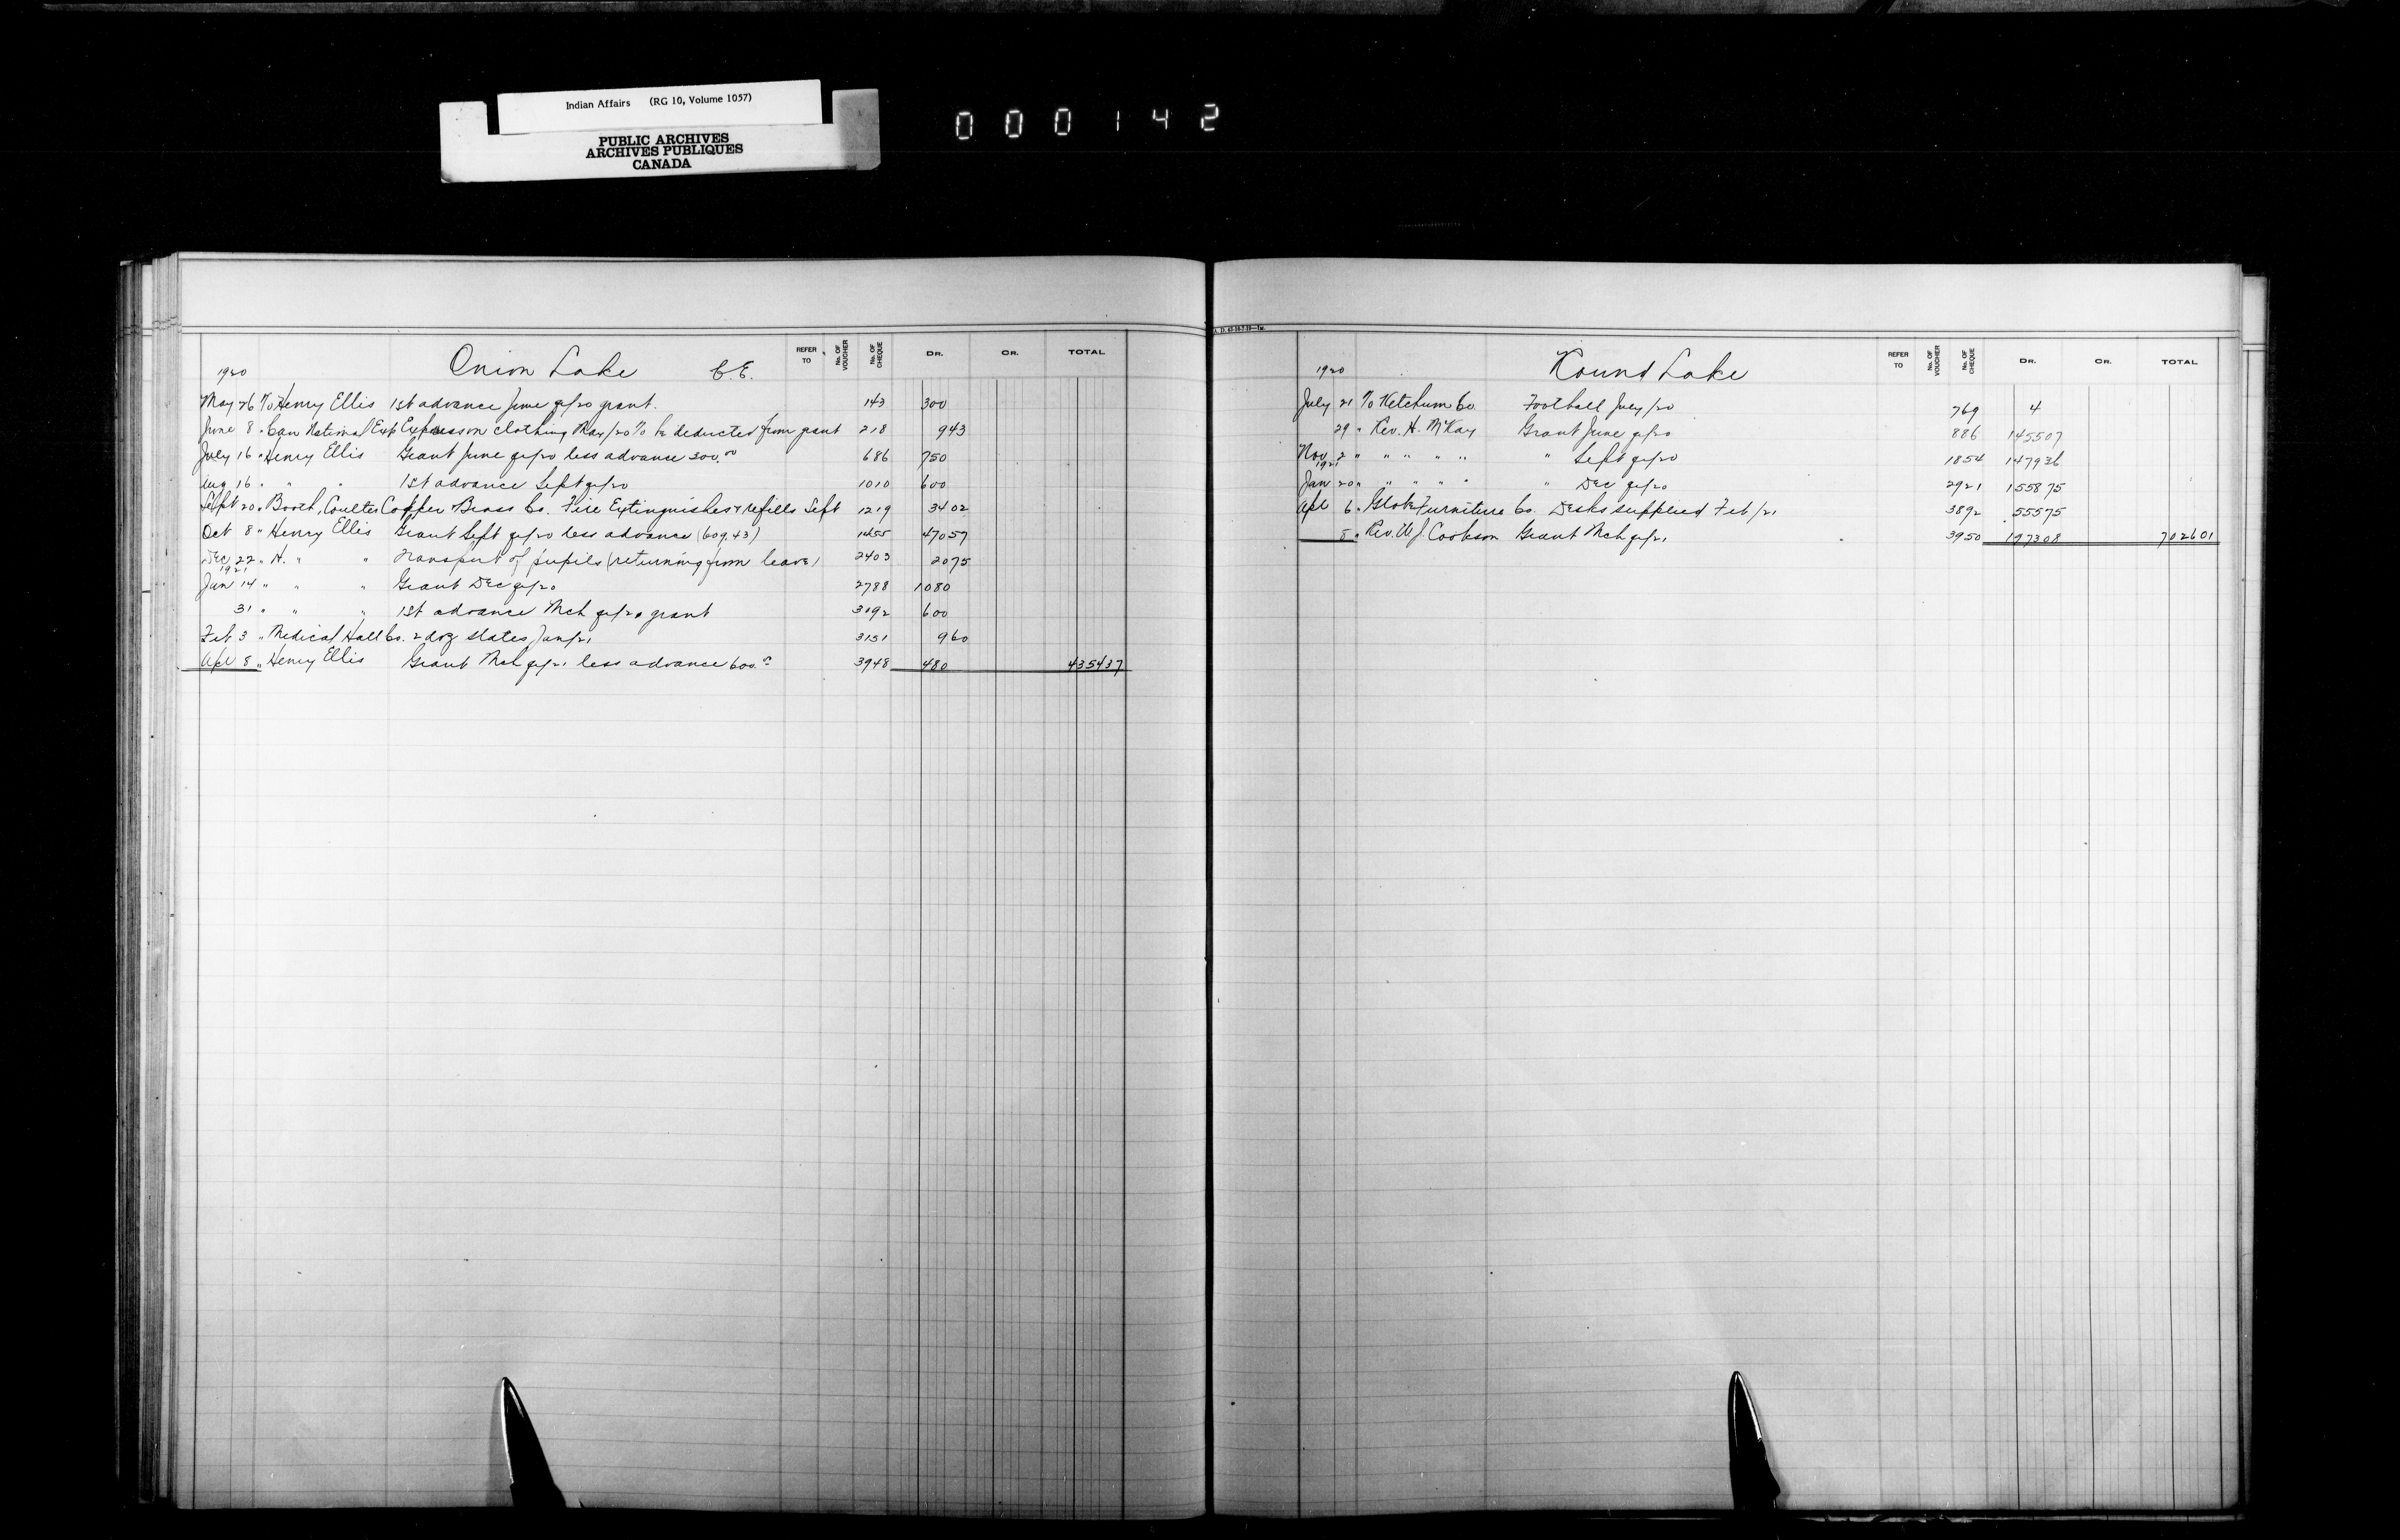 Indian Affairs (RG 10, Volume 1057)
PUBLIC ARCHIVES
ARCHIVES PUBLIQUES
CANADA
000142
1920 Onion Lake C.E. REFER TO No. OF VOUCHER No. OF CHEQUE DR. CR. TOTAL
May 26 To Henry Ellis 1st advance June qr/20 grant. 143 300
June 8 " Can National Exp Express on clothing May/20 to be deducted from grant 218 943
July 16 " Henry Ellis Grant June qr/20 less advance 300.00 686 750
Aug 16 " " " 1st advance Sept qr/20 1010 600
Sept 20 " Booth, Coulter Copper & Brass Co. Fire Extinguishers & refills Sept 1219 3402
Oct 8 " Henry Ellis Grant Sept qr/20 less advance (609.43) 1455 47057
Dec 22 " H. " " Transport of pupils (returning from leave) 2403 2075
1921
Jan 14 " " " Grant Dec qr/20 2788 1080
31 " " " 1st advance Mch qr/21 grant 3092 600
Feb 3 " Medical Hall Co. 2 doz slates Jan/21 3151 960
Apl 8 " Henry Ellis Grant Mch qr/21 less advance 600.00 3948 480 435437
1920 Round Lake REFER TO No. OF VOUCHER No. OF CHEQUE DR. CR. TOTAL
July 21 To Ketchum Co. Football July/20 769 4
29 " Rev. H. McKay Grant June qr/20 886 145507
Nov 2 " " " " " " Sept qr/20 1854 147936
1921
Jan 20 " " " " " " Dec qr/20 2921 155875
Apl 6 " Globe Furniture Co. Desks supplied Feb/21 3892 55575
8 " Rev. W.J. Cookson Grant Mch qr/21 3950 197308 702601